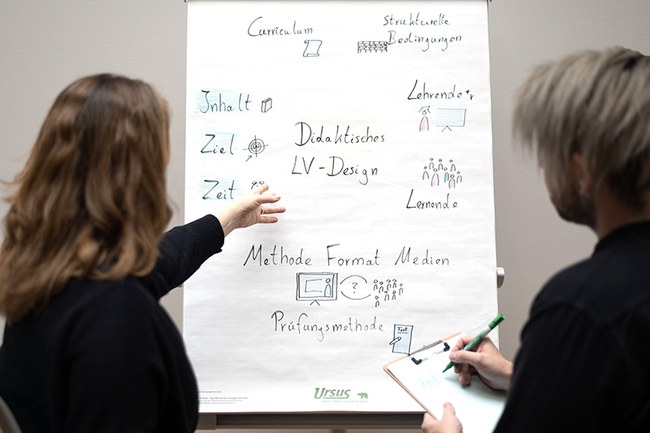 Curriculum
Strukturelle
Bedingungen
Inhalt
Ziel
Zeit
Didaktisches
LV-Design
Lehrende*r
Lernende
Methode Format Medien
?
Prüfungsmethode
Test
Ursus